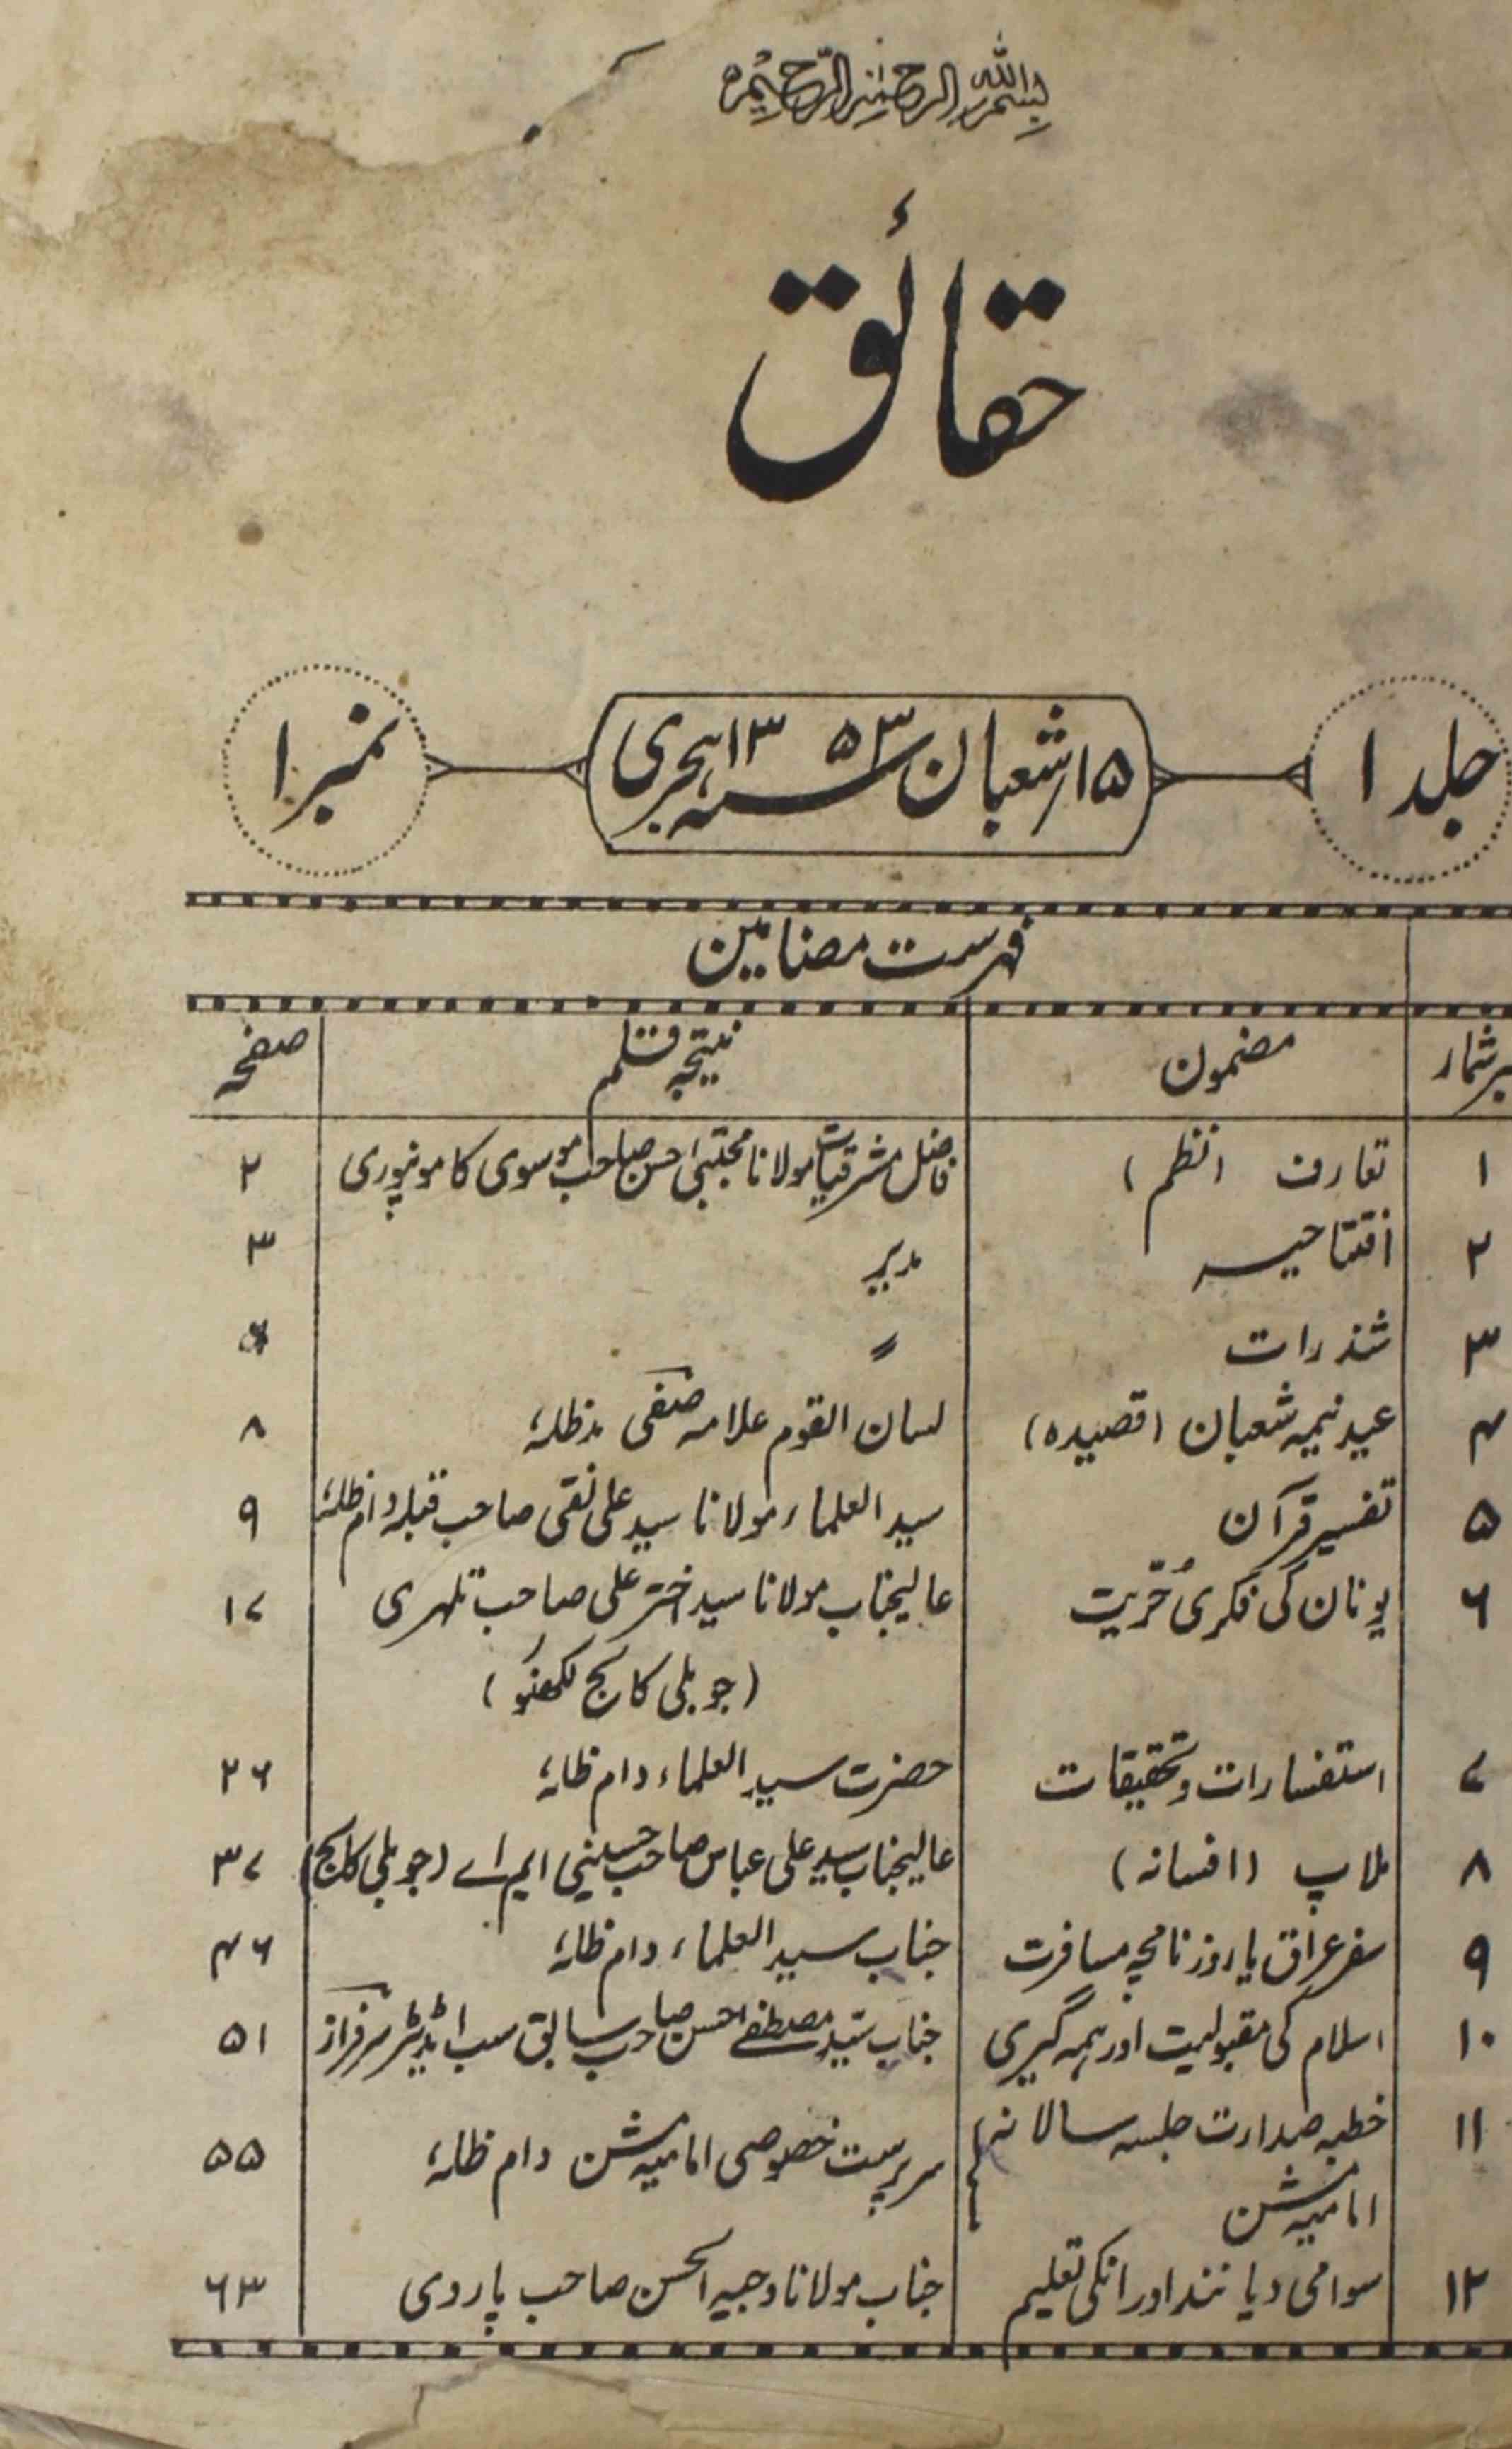 بسم اللہ الرحمٰن الرحیم
حقائق
جلد ۱
۱۵ر شعبان ۱۳۵۳ سنہ ہجری
نمبر ۱
فہرست مضامین
نمبر شمار مضمون نتیجہ قلم صفحہ
۱ تعارف (نظم) فاضل مشرقیات مولانا مجتبیٰ حسن صاحب موسوی کامونپوری ۲
۲ افتتاحیہ مدیر ۳
۳ شذرات 〃
۴ عید نیمہ شعبان (قصیدہ) لسان القوم علامہ صفی مدظلہٗ ۸
۵ تفسیر قرآن سید العلماء مولانا سید علی نقی صاحب قبلہ دام ظلہٗ ۹
۶ یونان کی فکری حُرّیت عالیجناب مولانا سید اختر علی صاحب تلہری ۱۷
(جوبلی کالج لکھنؤ)
۷ استفسارات و تحقیقات حضرت سید العلماء دام ظلہٗ ۲۶
۸ ملاپ (افسانہ) عالیجناب سید علی عباس صاحب حسینی ایم اے (جوبلی کالج) ۳۷
۹ سفر عراق یا روزنامچہ مسافرت جناب سید العلماء دام ظلہٗ ۴۶
۱۰ اسلام کی مقبولیت اور ہمہ گیری جناب سیّد مصطفےٰ حسن صاحب سابق سب اڈیٹر سرفراز ۵۱
۱۱ خطبہ صدارت جلسہ سالانہ سرپرست خصوصی امامیہ مشن دام ظلہٗ ۵۵
امامیہ مشن
۱۲ سوامی دیانند اور انکی تعلیم جناب مولانا وجیہ الحسن صاحب پاروی ۶۳